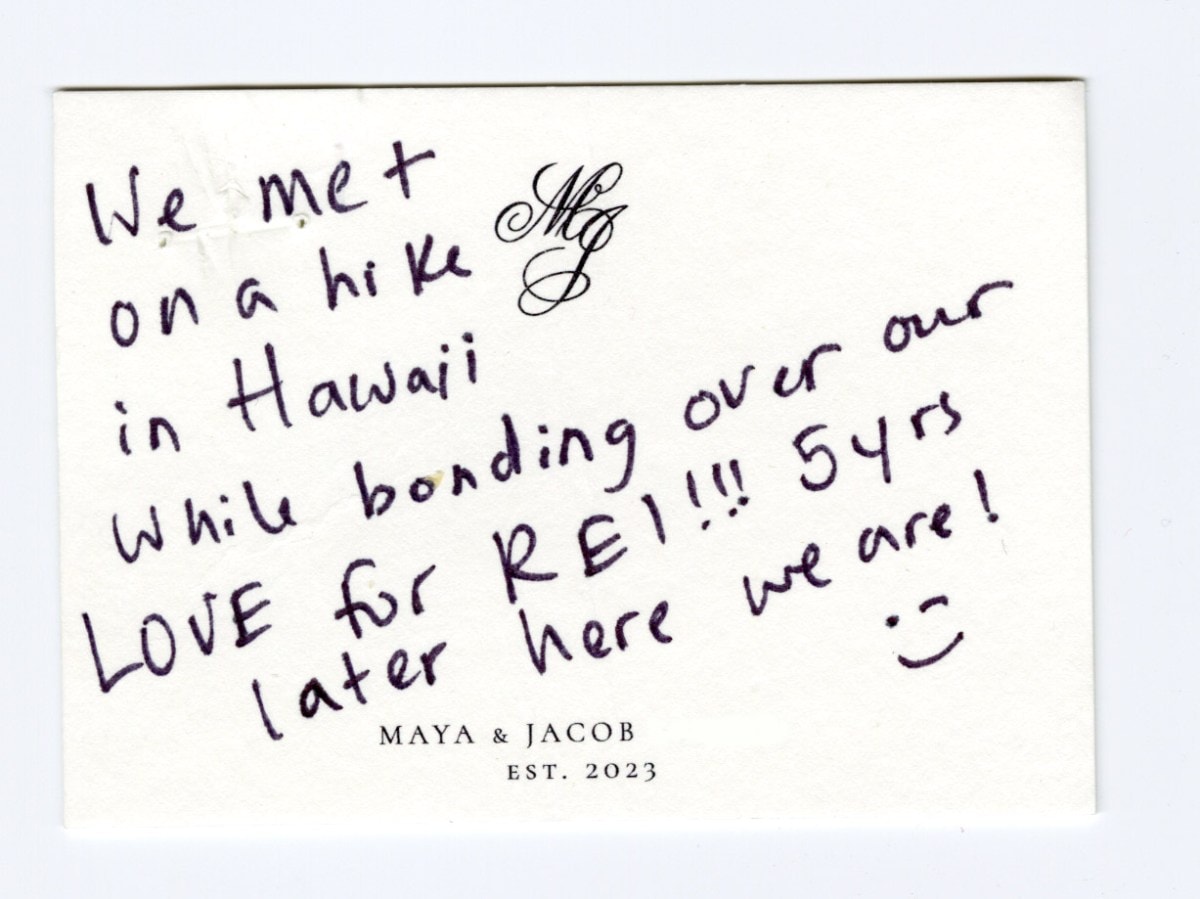 We met
on a hike
MJ
in Hawaii
while bonding over our
LOVE for REI!!! 5 yrs
later here we are!
:)
MAYA & JACOB
EST. 2023